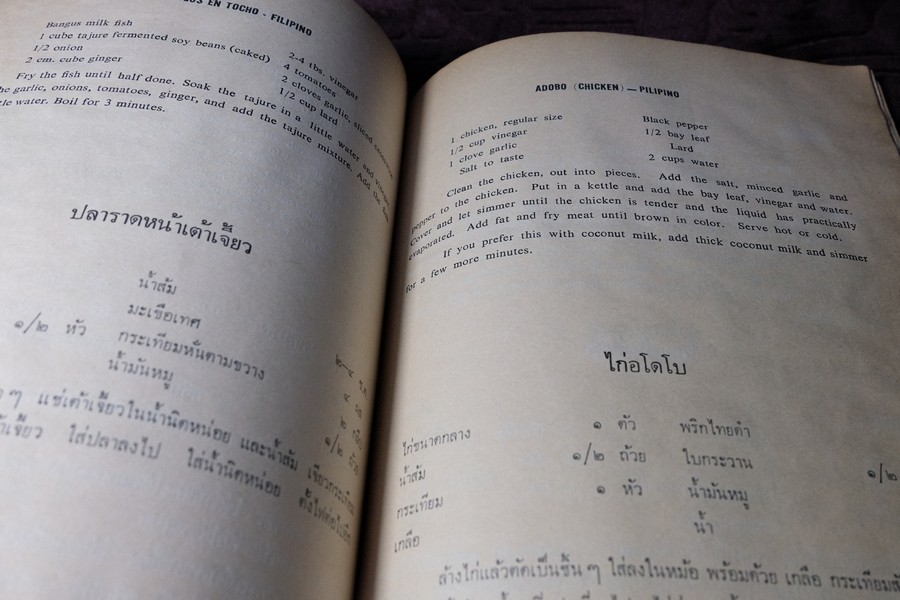 EN TOCHO - FILIPINO
Bangus milk fish
1 cube tajure fermented soy beans (caked)
1/2 onion
2 cm. cube ginger
2-4 tbs. vinegar
4 tomatoes
2 cloves garlic, sliced
1/2 cup lard
Fry the fish until half done. Soak the tajure in a little water and vinegar
garlic, onions, tomatoes, ginger, and add the tajure mixture. Add the fish
water. Boil for 3 minutes.
ปลาราดหน้าเต้าเจี้ยว
น้ำส้ม
๒-๔ ช.ต.
มะเขือเทศ
๑/๒ หัว
กระเทียมหั่นตามขวาง
น้ำมันหมู
๑/๒ ถ้วย
ๆ แช่เต้าเจี้ยวในน้ำนิดหน่อย และน้ำส้ม เจียวกระเทียม
ใส่ปลาลงไป ใส่น้ำนิดหน่อย
ADOBO (CHICKEN) — PILIPINO
1 chicken, regular size
1/2 cup vinegar
1 clove garlic
Salt to taste
Black pepper
1/2 bay leaf
Lard
2 cups water
Clean the chicken, out into pieces. Add the salt, minced garlic and
pepper to the chicken. Put in a kettle and add the bay leaf, vinegar and water.
Cover and let simmer until the chicken is tender and the liquid has practically
evaporated. Add fat and fry meat until brown in color. Serve hot or cold.
If you prefer this with coconut milk, add thick coconut milk and simmer
for a few more minutes.
ไก่อโดโบ
ไก่ขนาดกลาง ๑ ตัว
น้ำส้ม ๑/๒ ถ้วย
กระเทียม ๑ หัว
เกลือ
พริกไทยดำ
ใบกระวาน ๑/๒
น้ำมันหมู
น้ำ
ล้างไก่แล้วตัดเป็นชิ้น ๆ ใส่ลงในหม้อ พร้อมด้วย เกลือ กระเทียม